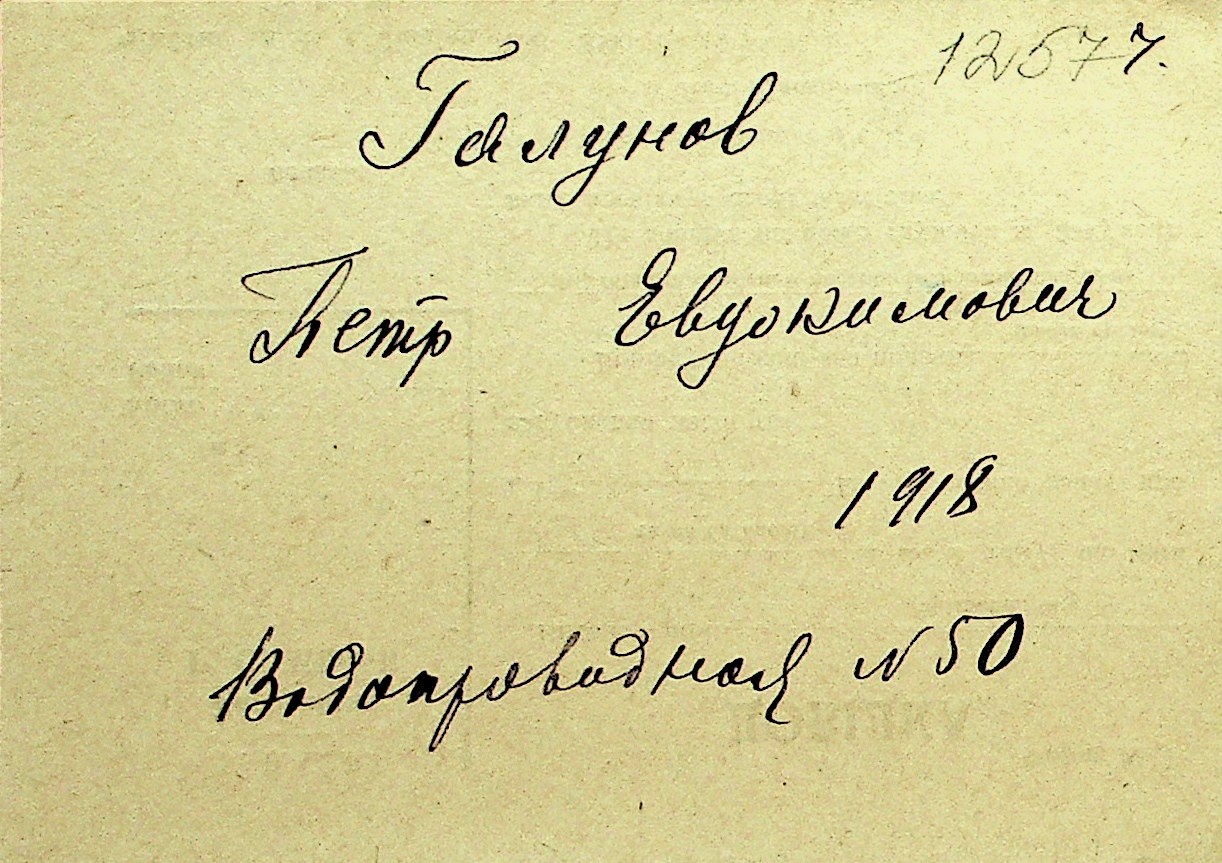 12577.
Галунов
Петр Евдокимович
1918
Водопроводная N 50